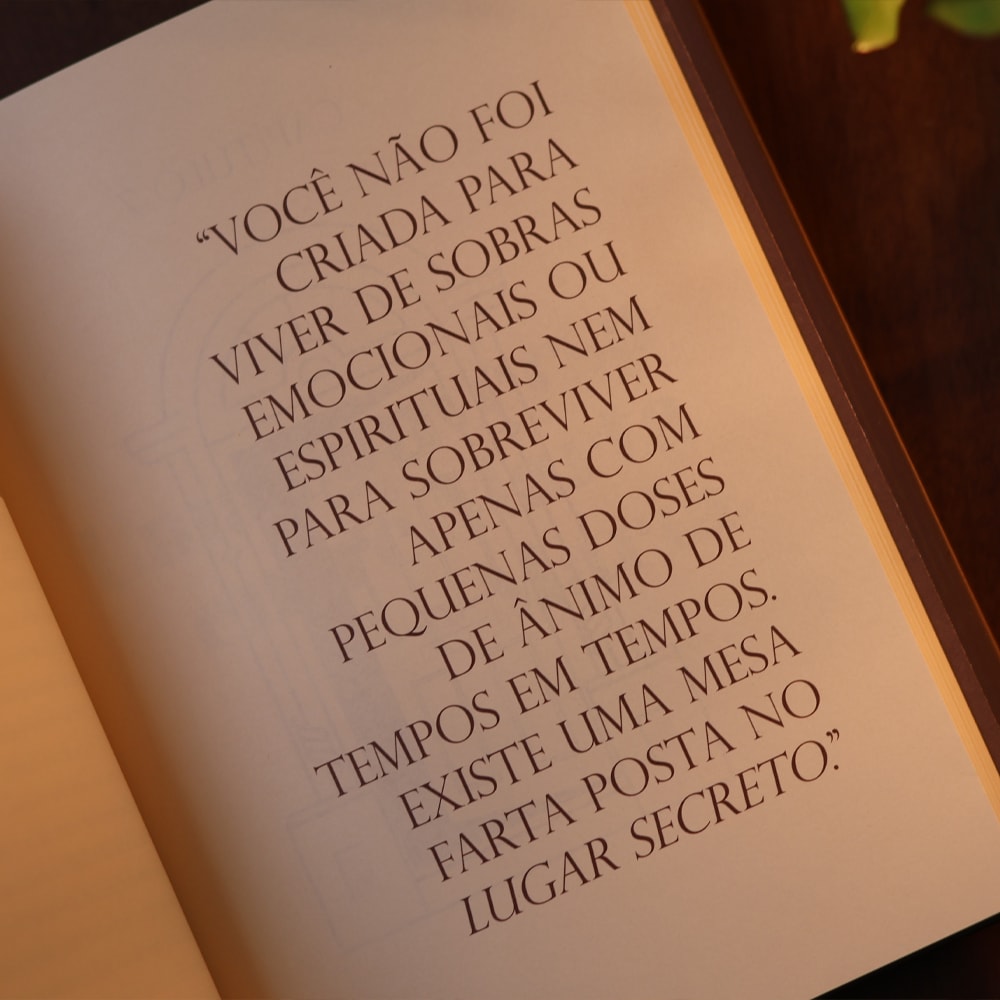 “VOCÊ NÃO FOI
CRIADA PARA
VIVER DE SOBRAS
EMOCIONAIS OU
ESPIRITUAIS NEM
PARA SOBREVIVER
APENAS COM
PEQUENAS DOSES
DE ÂNIMO DE
TEMPOS EM TEMPOS.
EXISTE UMA MESA
FARTA POSTA NO
LUGAR SECRETO.”